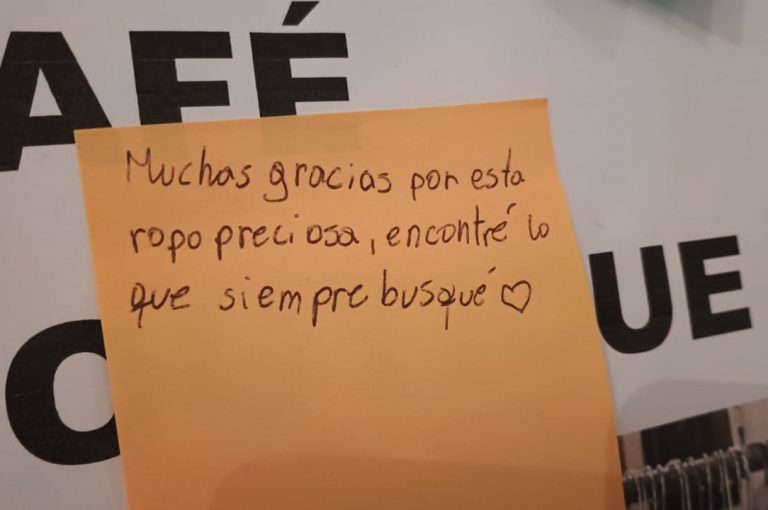 AFÉ
Muchas gracias por esta
ropa preciosa, encontré lo
que siempre busqué ♡
UE